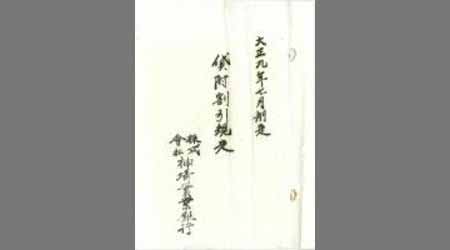 大正九年七月制定
貸附割引規定
株式會社神埼實業銀行